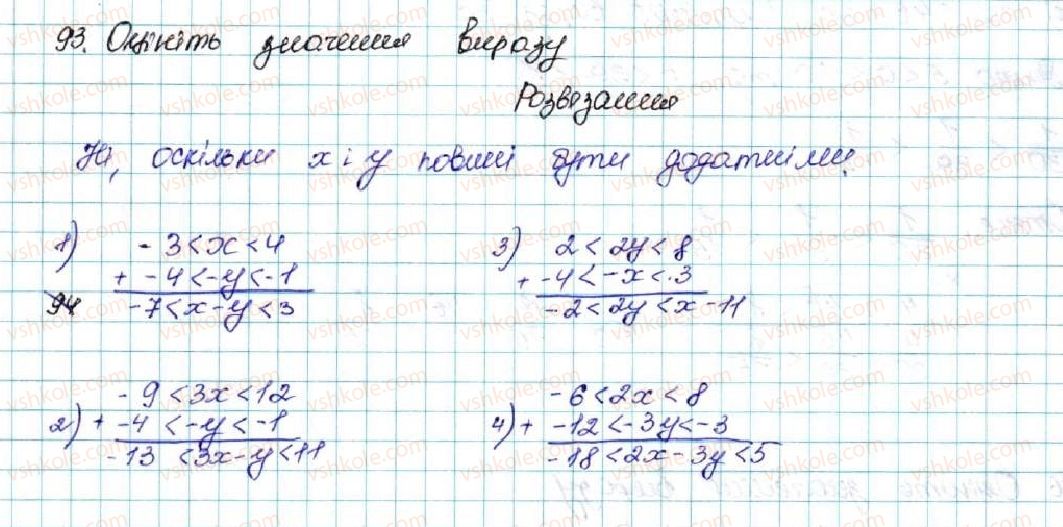 93. Оцініть значення виразу
Розвязання
Ні, оскільки x і y повинні бути додатніми.
1) - 3 < x < 4
+ - 4 < - y < - 1
94 - 7 < x - y < 3
3) 2 < 2y < 8
+ - 4 < - x < 3
- 2 < 2y < x - 11
- 9 < 3x < 12
2) + - 4 < - y < - 1
- 13 < 3x - y < 11
- 6 < 2x < 8
4) + - 12 < - 3y < - 3
- 18 < 2x - 3y < 5
vshkole.com